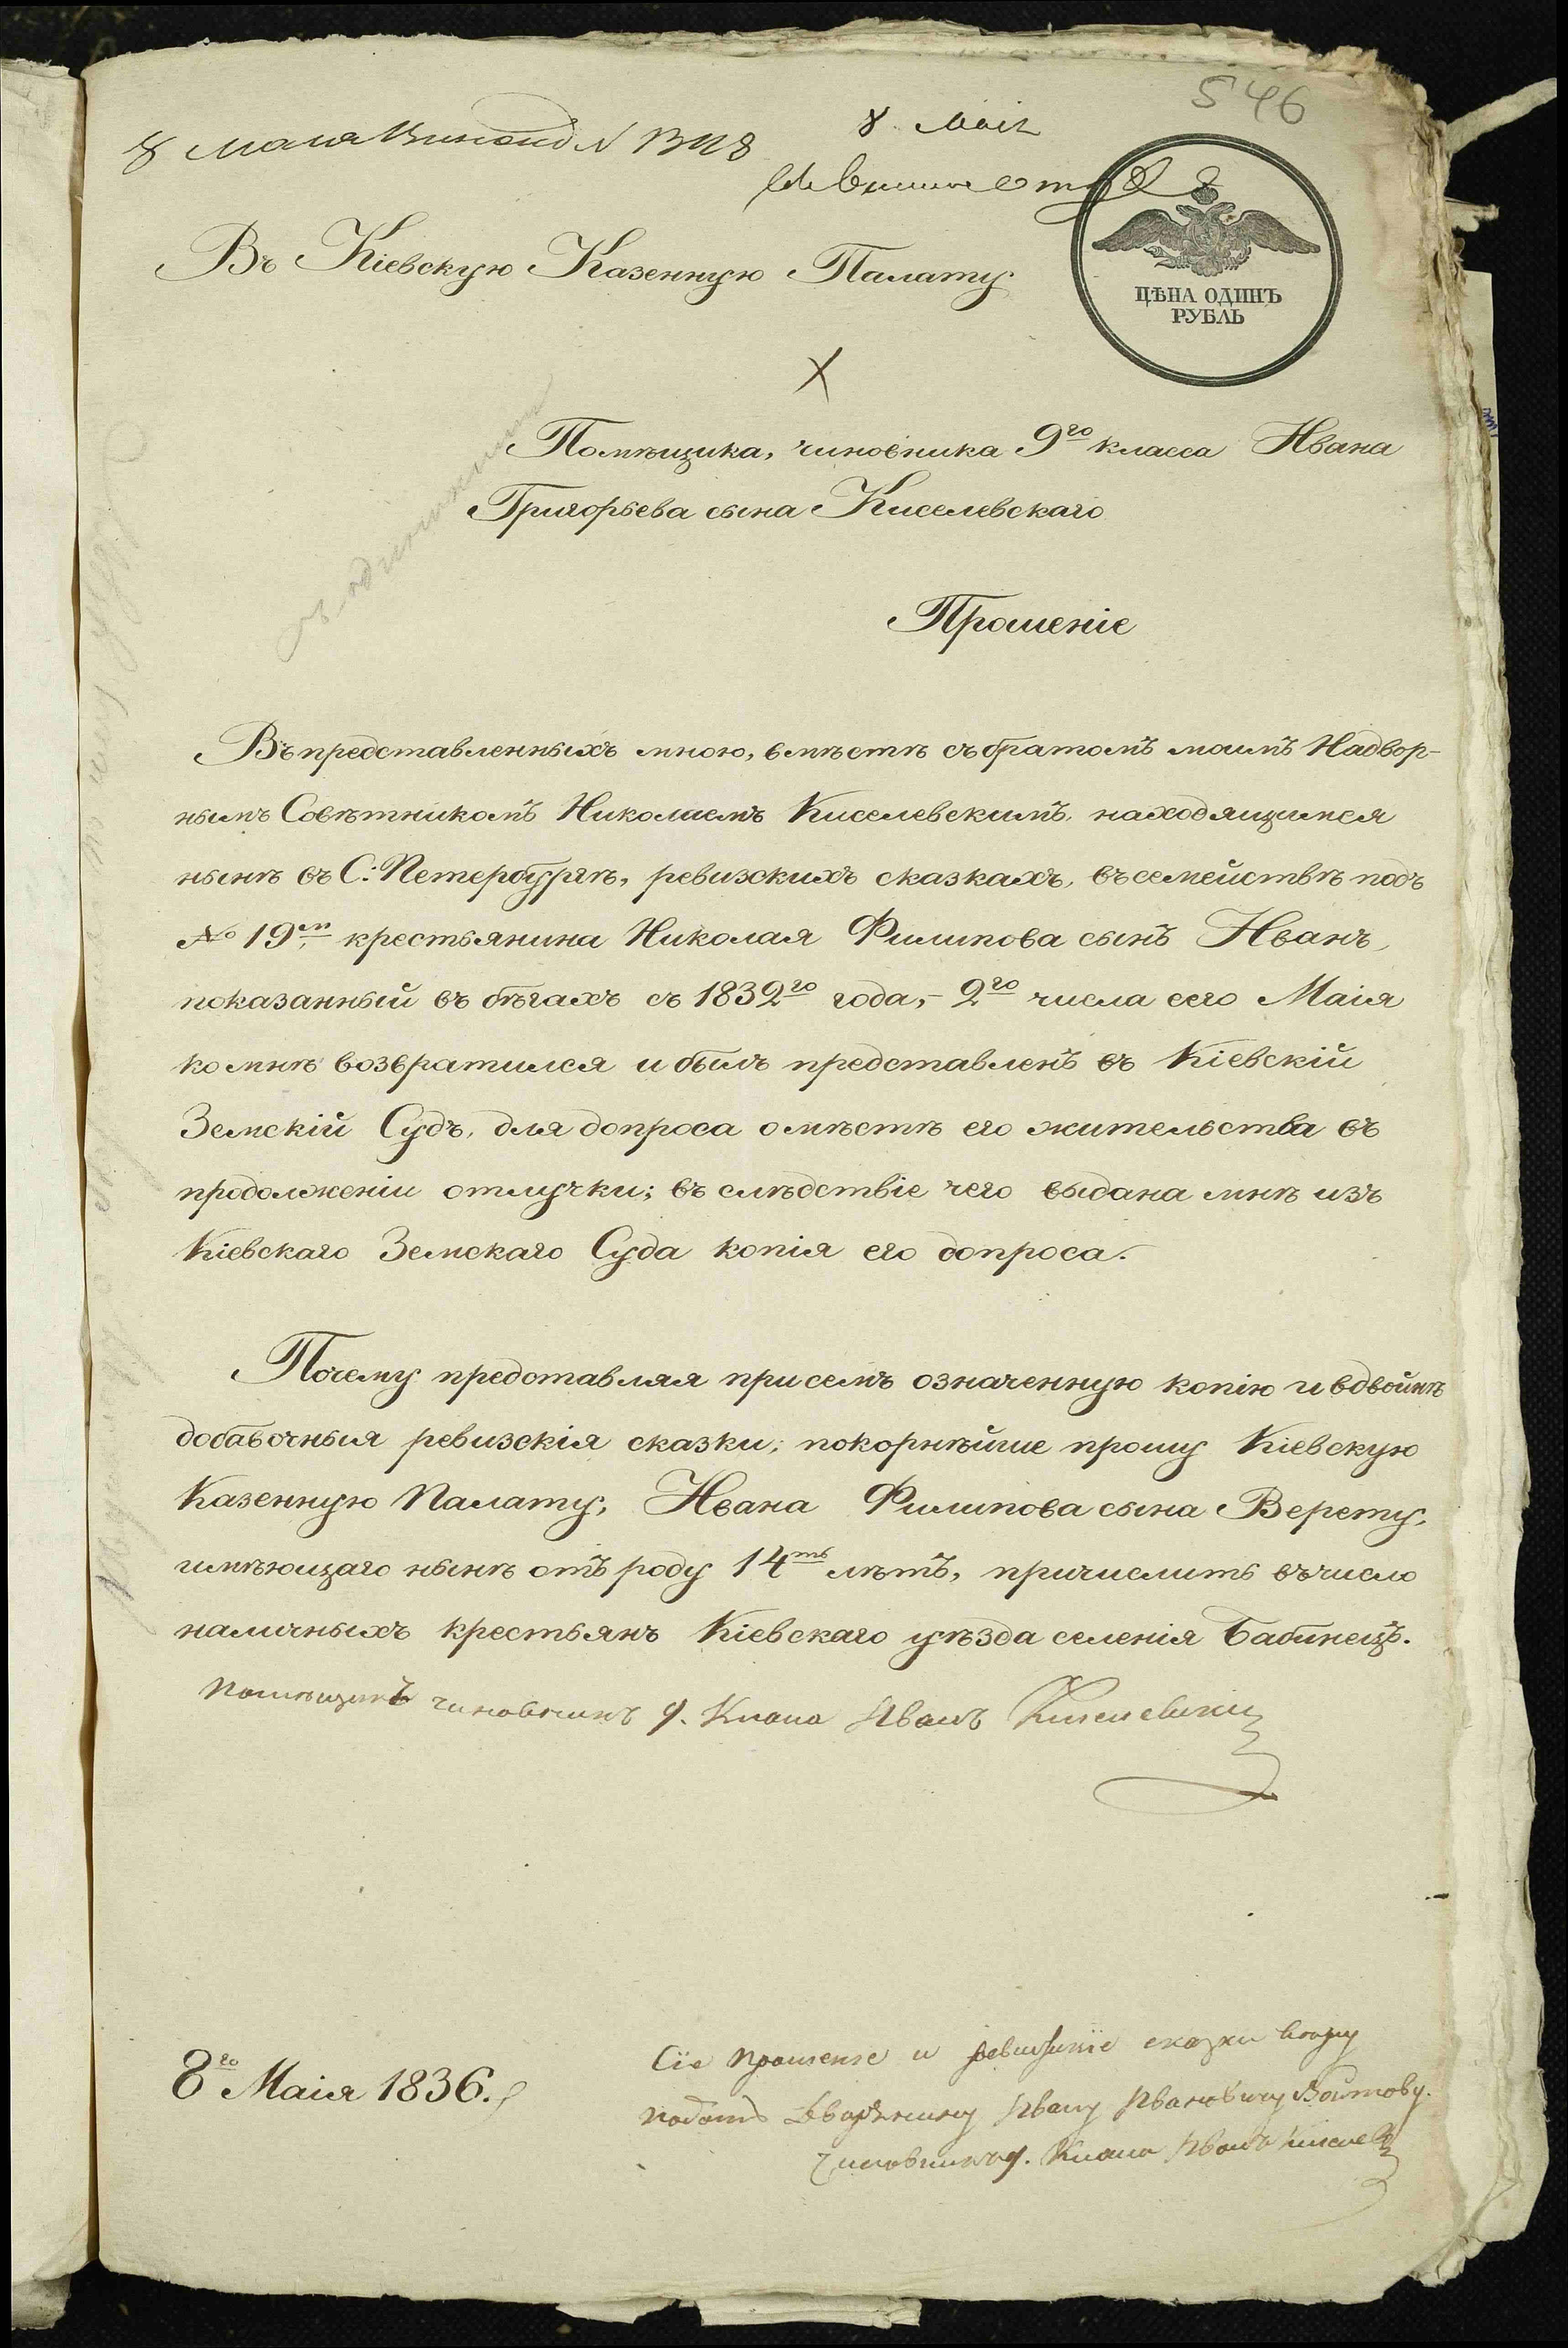 546
8 Маія
8 Маія
Въ Кіевскую Казенную Палату
ЦѢНА ОДИНЪ
РУБЛЬ
Помѣщика, чиновника 9го класса Ивана
Григорьева сына Киселевскаго
Прошеніе
Въ представленныхъ мною, вмѣстѣ съ братомъ моимъ Надвор-
нымъ Совѣтникомъ Николаемъ Киселевскимъ, находящимся
нынѣ въ С: Петербургѣ, ревизскихъ сказкахъ, въ семействѣ подъ
№ 19м крестьянина Николая Филипова сынъ Иванъ,
показанный въ бѣгахъ съ 1832го года,- 2го числа сего Маія
ко мнѣ возвратился и былъ представленъ въ Кіевскій
Земскій Судъ, для допроса о мѣстѣ его жительства въ
продолженіи отлучки; въ слѣдствіе чего выдана мнѣ изъ
Кіевскаго Земскаго Суда копія его допроса.
Почему представляя при семъ означенную копію и вдвойнѣ
добавочныя ревизскія сказки; покорнѣйше прошу Кіевскую
Казенную Палату, Ивана Филипова сына Верету,
имѣющаго нынѣ отъ роду 14ть лѣтъ, причислить въ число
наличныхъ крестьянъ Кіевскаго уѣзда селенія Бабинецъ.
Помѣщикъ чиновникъ 9. Класа Иванъ Киселевскій
8го Маія 1836.
Сіе прошеніе и ревизскіе сказки
подать Дворянину Ивану Ивановичу Войтову.
Чиновникъ 9. Класа Иванъ